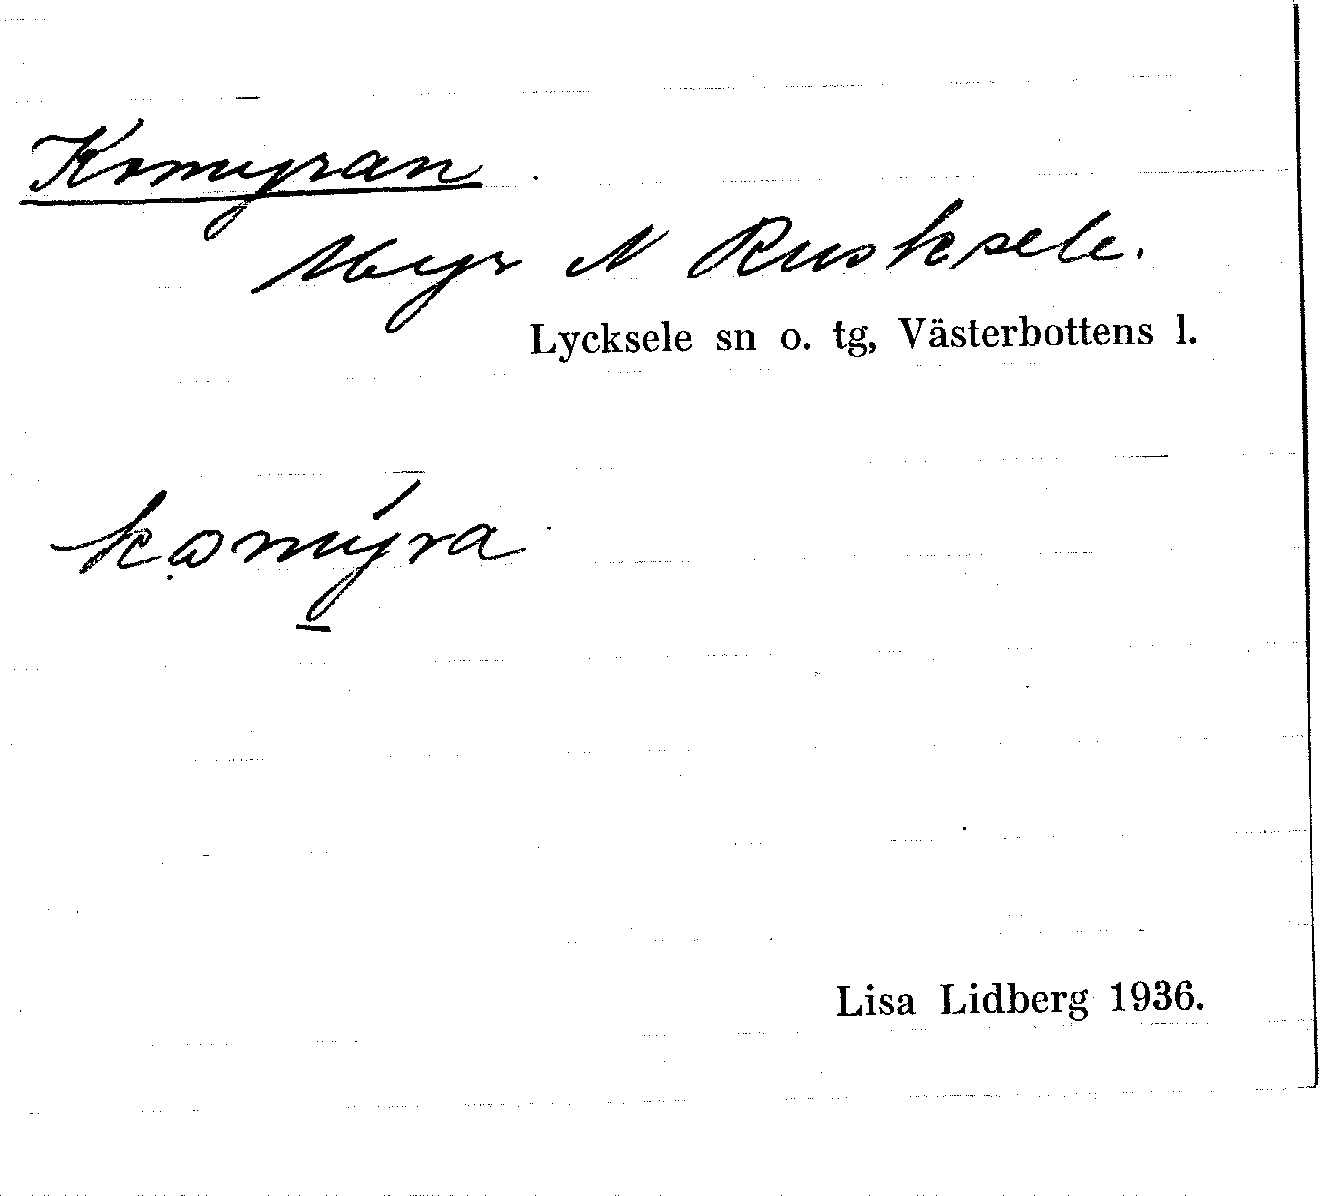 Komyran
Myr N Rusksele.
Lycksele sn o. tg, Västerbottens l.
komýra
Lisa Lidberg 1936.